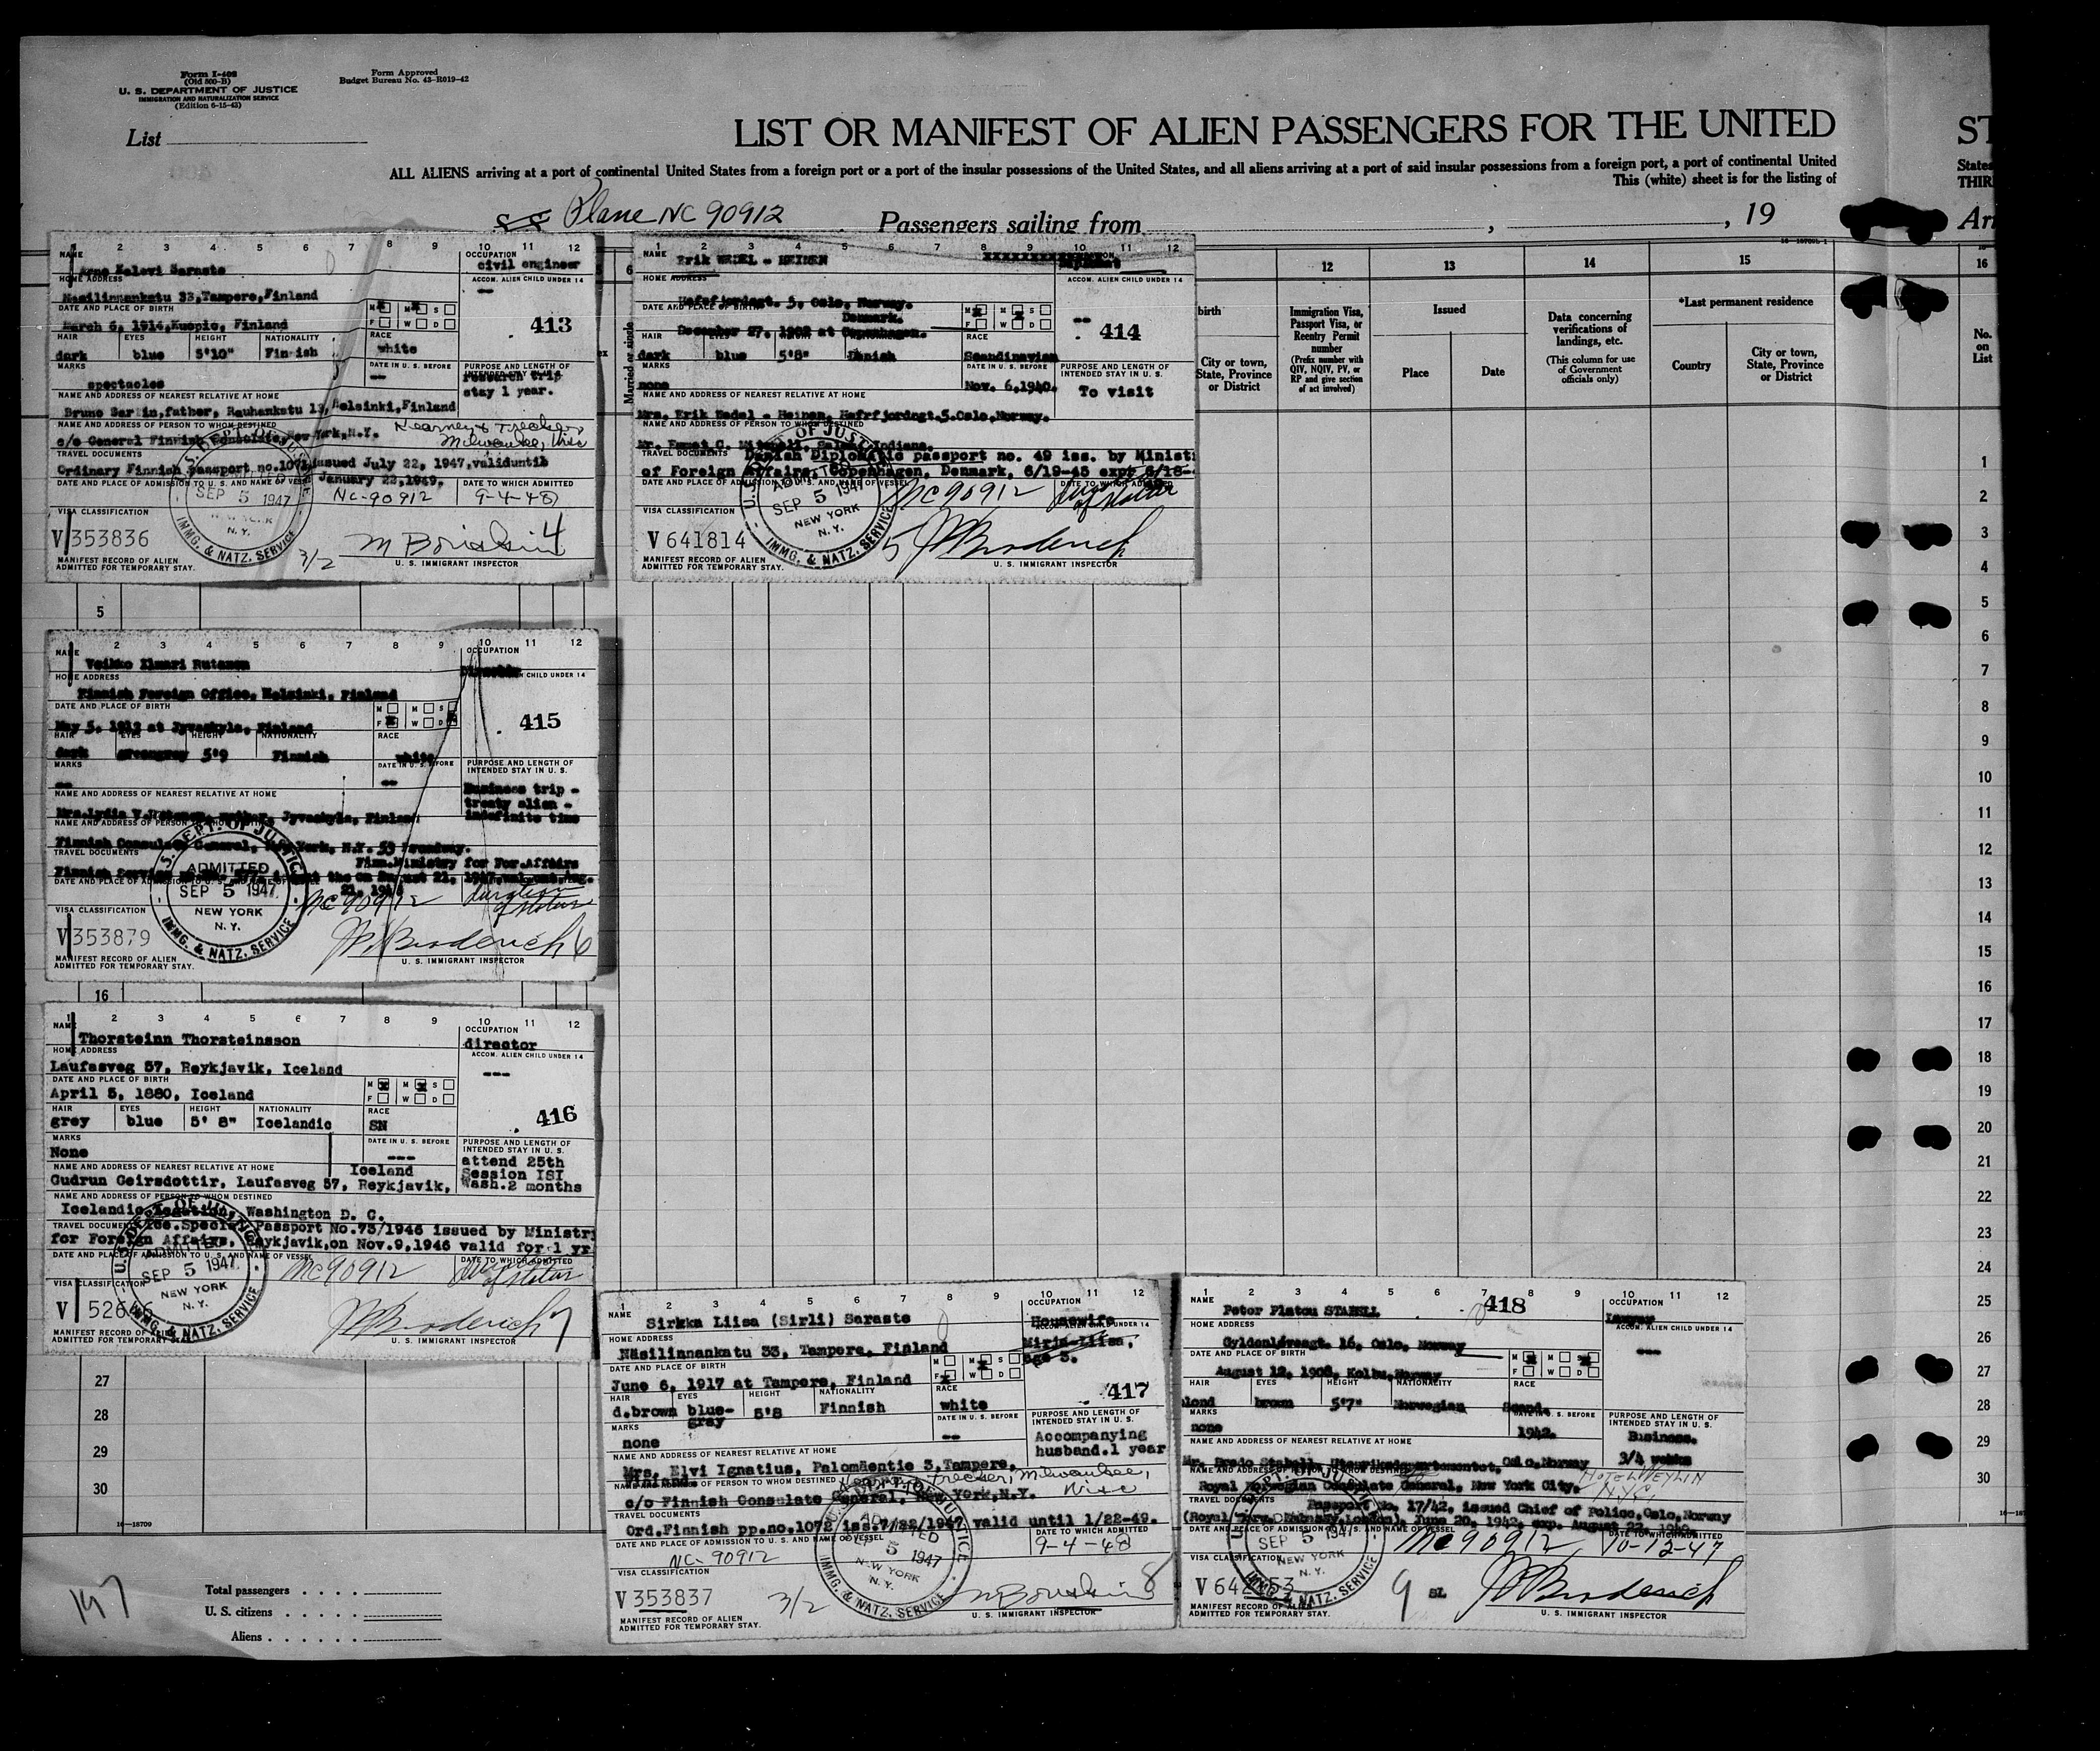 Form I-402
(Old 500-B)
U. S. DEPARTMENT OF JUSTICE
IMMIGRATION AND NATURALIZATION SERVICE
(Edition 6-15-43)
Form Approved
Budget Bureau No. 43-R019-42
List
LIST OR MANIFEST OF ALIEN PASSENGERS FOR THE UNITED
ST
ALL ALIENS arriving at a port of continental United States from a foreign port or a port of the insular possessions of the United States, and all aliens arriving at a port of said insular possessions from a foreign port, a port of continental United
States
This (white) sheet is for the listing of
THIR
Plane NC 90912 Passengers sailing from , , 19
1 2 3 4 5 6 7 8 9 10 11 12
NAME
Kalevi Saraste
OCCUPATION
civil engineer
HOME ADDRESS
ACCOM. ALIEN CHILD UNDER 14
Hasilinnankatu 33, Tampere, Finland
--
DATE AND PLACE OF BIRTH
March 6, 1914, Kuopio, Finland
M M S
F W D
413
HAIR EYES HEIGHT NATIONALITY RACE
dark blue 5'10" Finnish white
MARKS
DATE IN U. S. BEFORE
PURPOSE AND LENGTH OF INTENDED STAY IN U. S.
spectacles
--
research trip
stay 1 year.
NAME AND ADDRESS OF NEAREST RELATIVE AT HOME
father, Rauhankatu 13, Helsinki, Finland
NAME AND ADDRESS OF PERSON TO WHOM DESTINED
c/o General Finnish Consulate, New York, N.Y. Kearney & Trecker Milwaukee, Wisc
TRAVEL DOCUMENTS
Ordinary Finnish passport no. 1071 issued July 22, 1947, valid until
January 22, 1949.
DATE AND PLACE OF ADMISSION TO U. S. AND NAME OF VESSEL
DATE TO WHICH ADMITTED
SEP 5 1947
NC-90912
9-4-48
VISA CLASSIFICATION
V 353836
N.Y.
IMMG. & NATZ. SERVICE
3/2
4
MANIFEST RECORD OF ALIEN
ADMITTED FOR TEMPORARY STAY.
U. S. IMMIGRANT INSPECTOR
1 2 3 4 5 6 7 8 9 10 11 12
NAME
Erik WEDEL - HEINEN
HOME ADDRESS
ACCOM. ALIEN CHILD UNDER 14
5, Oslo, Norway.
DATE AND PLACE OF BIRTH
Denmark.
December 27, 1902 at Copenhagen.
M M S
F W D
--
414
HAIR EYES HEIGHT RACE
dark blue 5'8" Danish Scandinavian
MARKS
none
Nov. 6, 1940.
PURPOSE AND LENGTH OF
INTENDED STAY IN U. S.
To visit
NAME AND ADDRESS OF NEAREST RELATIVE AT HOME
Mrs. Erik Wedel - Heinen, 5, Oslo, Norway.
NAME AND ADDRESS OF PERSON TO WHOM DESTINED
Mr. C. Mitchell, Indiana.
TRAVEL DOCUMENTS
Danish Diplomatic passport no. 49 iss. by Minist
of Foreign Affairs, Copenhagen, Denmark, 6/19-45
ADMITTED
SEP 5 1947
NEW YORK
N.Y.
IMMG. & NATZ. SERVICE
NC 90912
duration
of status
VISA CLASSIFICATION
V 641814
5
MANIFEST RECORD OF ALIEN
ADMITTED FOR TEMPORARY STAY.
J Broderick
U. S. IMMIGRANT INSPECTOR
birth
City or town, State, Province or District
12
Immigration Visa, Passport Visa, or Reentry Permit number
(Prefix number with QIV, NQIV, PV, or RP and give section of act involved)
13
Issued
Place
Date
14
Data concerning verifications of landings, etc.
(This column for use of Government officials only)
15
*Last permanent residence
Country
City or town, State, Province or District
16
No. on List
Married or single
5
1 2 3 4 5 6 7 8 9 10 11 12
NAME
Veikko Ilmari Rutanen
OCCUPATION
HOME ADDRESS
CHILD UNDER 14
Finnish Foreign Office, Helsinki, Finland
DATE AND PLACE OF BIRTH
May 5, 1913 at Jyvaskyla, Finland
M M S
F W D
415
HAIR EYES HEIGHT NATIONALITY RACE
dark greengrey 5'9 Finnish white
MARKS
DATE IN U. S. BEFORE
--
PURPOSE AND LENGTH OF
INTENDED STAY IN U. S.
Business trip -
treaty alien -
indefinite time
NAME AND ADDRESS OF NEAREST RELATIVE AT HOME
Mrs. Lydia mother, Jyvaskyla, Finland
NAME AND ADDRESS OF PERSON TO WHOM DESTINED
Finnish Consulate General, New York, N.Y. 53 Broadway.
TRAVEL DOCUMENTS
Finn. Ministry for For. Affairs
ADMITTED
SEP 5 1947
NEW YORK
N.Y.
IMMG. & NATZ. SERVICE
NC 90912
duration
of status
VISA CLASSIFICATION
V 353879
J Broderick 6
MANIFEST RECORD OF ALIEN
ADMITTED FOR TEMPORARY STAY.
U. S. IMMIGRANT INSPECTOR
16
1 2 3 4 5 6 7 8 9 10 11 12
NAME
Thorsteinn Thorsteinsson
OCCUPATION
director
HOME ADDRESS
ACCOM. ALIEN CHILD UNDER 14
Laufasveg 57, Reykjavik, Iceland
---
DATE AND PLACE OF BIRTH
April 5, 1880, Iceland
M M S
F W D
416
HAIR EYES HEIGHT NATIONALITY RACE
grey blue 5' 8" Icelandic SN
MARKS
None
DATE IN U. S. BEFORE
---
PURPOSE AND LENGTH OF
INTENDED STAY IN U. S.
attend 25th
Session ISI
Wash. 2 months
NAME AND ADDRESS OF NEAREST RELATIVE AT HOME
Iceland
Gudrun Geirsdottir, Laufasveg 57, Reykjavik,
NAME AND ADDRESS OF PERSON TO WHOM DESTINED
Icelandic Legation, Washington D. C.
TRAVEL DOCUMENTS
Ice. Special Passport No. 73/1946 issued by Ministry
for Foreign Affairs, Reykjavik, on Nov. 9, 1946 valid for 1 yr
DATE AND PLACE OF ADMISSION TO U. S. AND NAME OF VESSEL
DATE TO WHICH ADMITTED
ADMITTED
SEP 5 1947
NEW YORK
N.Y.
IMMG. & NATZ. SERVICE
NC 90912
duration
of status
VISA CLASSIFICATION
V 52646
J Broderick 7
MANIFEST RECORD OF ALIEN
ADMITTED FOR TEMPORARY STAY.
U. S. IMMIGRANT INSPECTOR
1 2 3 4 5 6 7 8 9 10 11 12
NAME
Sirkka Liisa (Sirli) Saraste
OCCUPATION
Housewife
HOME ADDRESS
Näsilinnankatu 33, Tampere, Finland
Mirja-Liisa,
age 5.
DATE AND PLACE OF BIRTH
June 6, 1917 at Tampere, Finland
M M S
F W D
417
HAIR EYES HEIGHT NATIONALITY RACE
d.brown blue-gray 5'8 Finnish white
MARKS
none
DATE IN U. S. BEFORE
--
PURPOSE AND LENGTH OF
INTENDED STAY IN U. S.
Accompanying
husband. 1 year
NAME AND ADDRESS OF NEAREST RELATIVE AT HOME
Mrs. Elvi Ignatius, Palomäentie 3, Tampere,
Finland.
NAME AND ADDRESS OF PERSON TO WHOM DESTINED
Kearney Trecker, Milwaukee, Wisc
c/o Finnish Consulate General, New York, N.Y.
TRAVEL DOCUMENTS
Ord. Finnish pp. no. 1072 iss. 7/22/1947 valid until 1/22-49.
DATE AND PLACE OF ADMISSION TO U. S. AND NAME OF VESSEL
DATE TO WHICH ADMITTED
NC-90912
SEP 5 1947
NEW YORK
N.Y.
9-4-48
VISA CLASSIFICATION
V 353837
3/2
8
IMMG. & NATZ. SERVICE
MANIFEST RECORD OF ALIEN
ADMITTED FOR TEMPORARY STAY.
U. S. IMMIGRANT INSPECTOR
1 2 3 4 5 6 7 8 9 10 11 12
418
NAME
Peter Platou STABELL
OCCUPATION
Lawyer
HOME ADDRESS
ACCOM. ALIEN CHILD UNDER 14
16, Oslo, Norway
---
DATE AND PLACE OF BIRTH
August 12, 1908, Kolbu, Norway
M M S
F W D
HAIR EYES HEIGHT NATIONALITY RACE
blond brown 5'7" Norwegian Scand.
MARKS
none
DATE IN U. S. BEFORE
1942.
PURPOSE AND LENGTH OF
INTENDED STAY IN U. S.
Business.
3/4 weeks
NAME AND ADDRESS OF NEAREST RELATIVE AT HOME
Stabell, Utenriksdepartementet, Oslo, Norway
NAME AND ADDRESS OF PERSON TO WHOM DESTINED
Royal Norwegian Consulate General, New York City.
HOTEL WEYLIN
NYC
TRAVEL DOCUMENTS
Passport No. 17/42, issued Chief of Police, Oslo, Norway
(Royal Norw. Embassy, London), June 20, 1942, exp. August
SEP 5 1947
NEW YORK
N.Y.
NC 90912
10-12-47
VISA CLASSIFICATION
9 SL
J Broderick
MANIFEST RECORD OF ALIEN
ADMITTED FOR TEMPORARY STAY.
U. S. IMMIGRANT INSPECTOR
27
28
29
30
16-18709
1
2
3
4
5
6
7
8
9
10
11
12
13
14
15
16
17
18
19
20
21
22
23
24
25
26
27
28
29
30
147
Total passengers . . . .
U. S. citizens . . . . .
Aliens . . . . . .